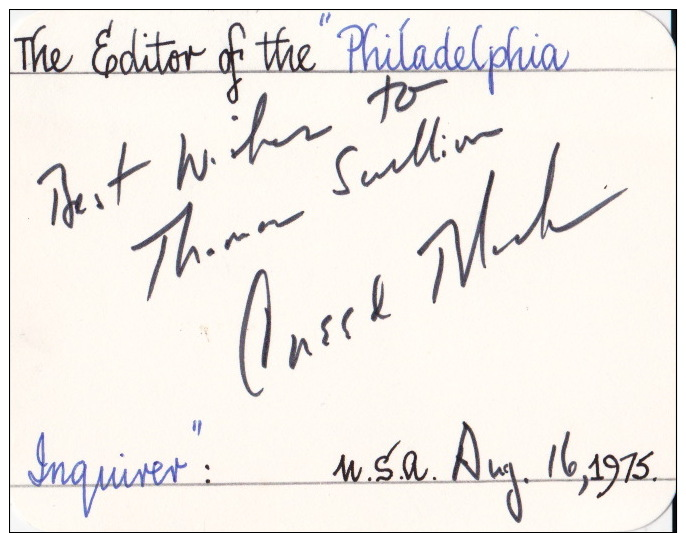 The Editor of the "Philadelphia
Best Wishes to
Thomas Sullivan
Creed Black
Inquirer": U.S.A. Aug. 16, 1975.